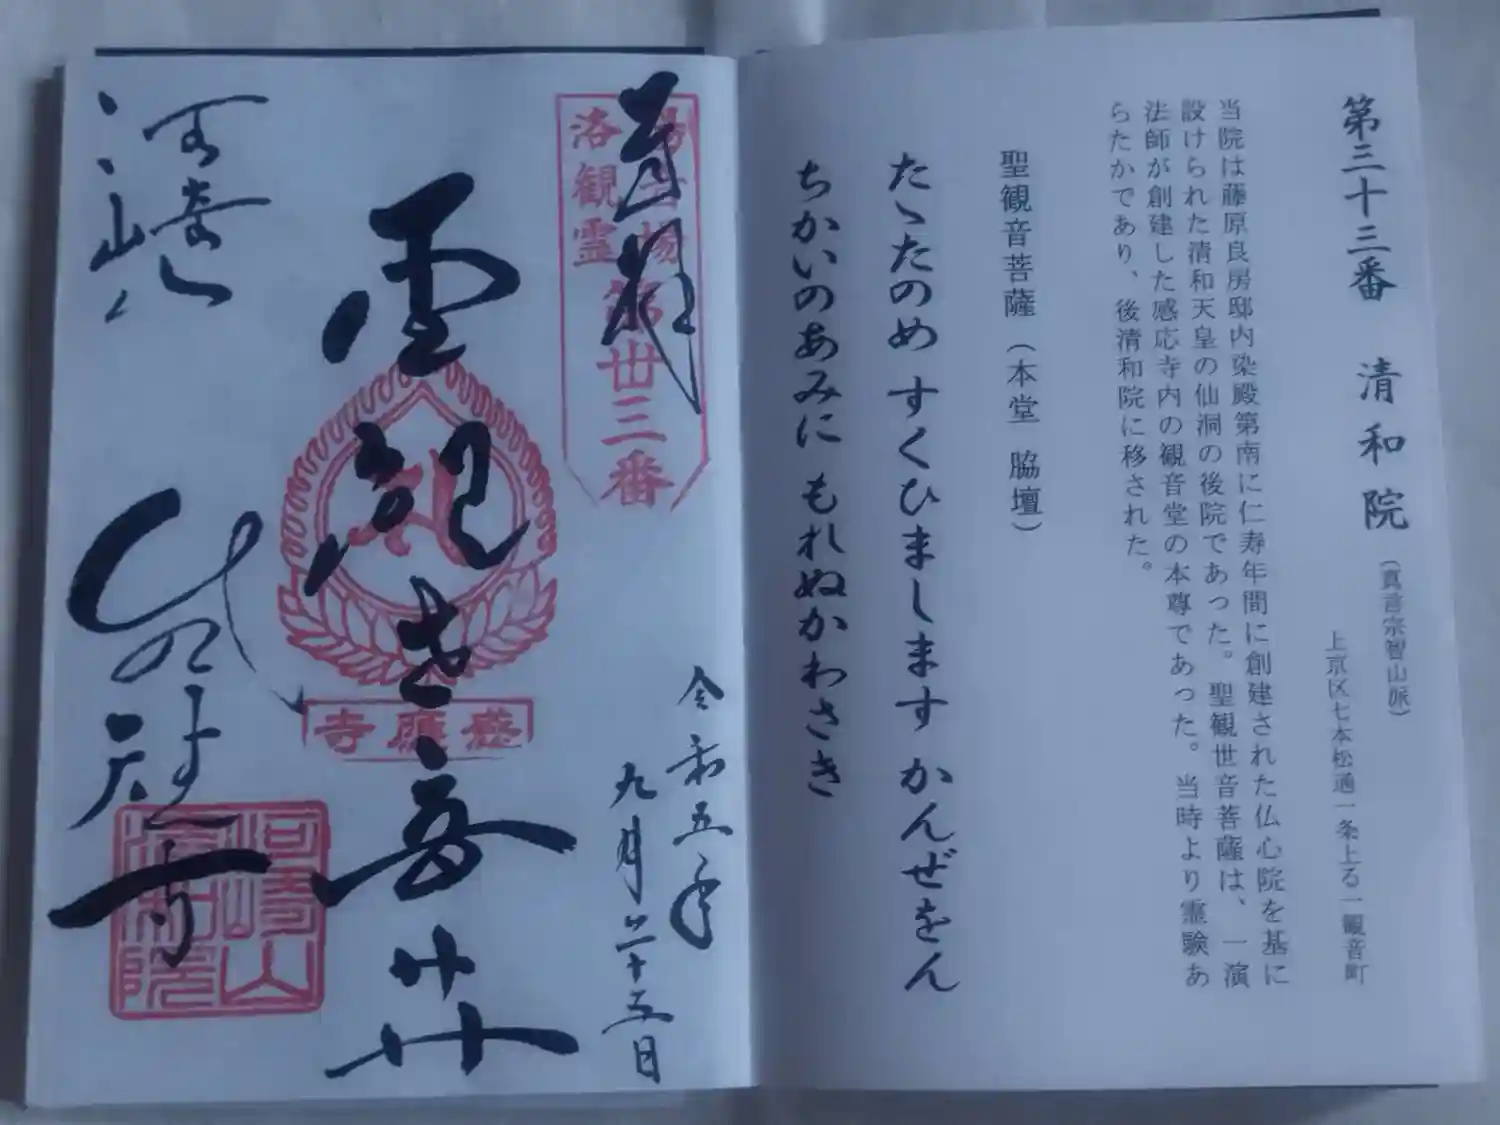 第三十三番　清和院
(真言宗智山派)
上京区七本松通一条上る一観音町
当院は藤原良房邸内染殿第南に仁寿年間に創建された仏心院を基に
設けられた清和天皇の仙洞の後院であった。聖観世音菩薩は、一演
法師が創建した感応寺内の観音堂の本尊であった。当時より霊験あ
らたかであり、後清和院に移された。
聖観音菩薩（本堂　脇壇）
たゝたのめ すくひまします かんぜをん
ちかいのあみに もれぬかわさき
洛陽観音霊場
第卅三番
令和五年
九月二十三日
感應寺
河崎山
清和院